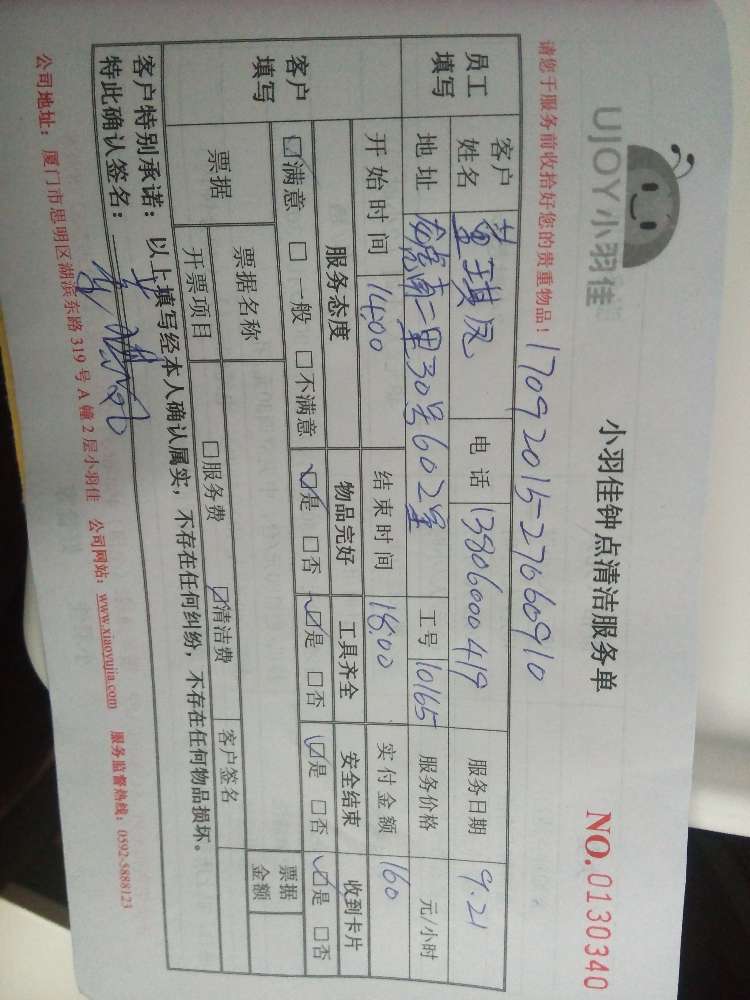 UJOY小羽佳
小羽佳钟点清洁服务单
NO.0130340
请您于服务前收拾好您的贵重物品!
1709201527660910
员工填写
客户姓名 黄琪凤 电话 13806000419 服务日期 9.21
地址 南二里30号602室 工号 10165 服务价格 元/小时
开始时间 14:00 结束时间 18:00 实付金额 160
客户填写
服务态度 物品完好 工具齐全 安全结束 收到卡片
☑满意 □一般 □不满意 ☑是 □否 ☑是 □否 ☑是 □否 ☑是 □否
票据 票据名称 票据金额
开票项目 □服务费 ☑清洁费 客户签名
客户特别承诺:以上填写经本人确认属实,不存在任何纠纷,不存在任何物品损坏。
特此确认签名:
公司地址:厦门市思明区湖滨东路319号A幢2层小羽佳 公司网站:www.xiaoyujia.com 服务监督热线:0592-5888123